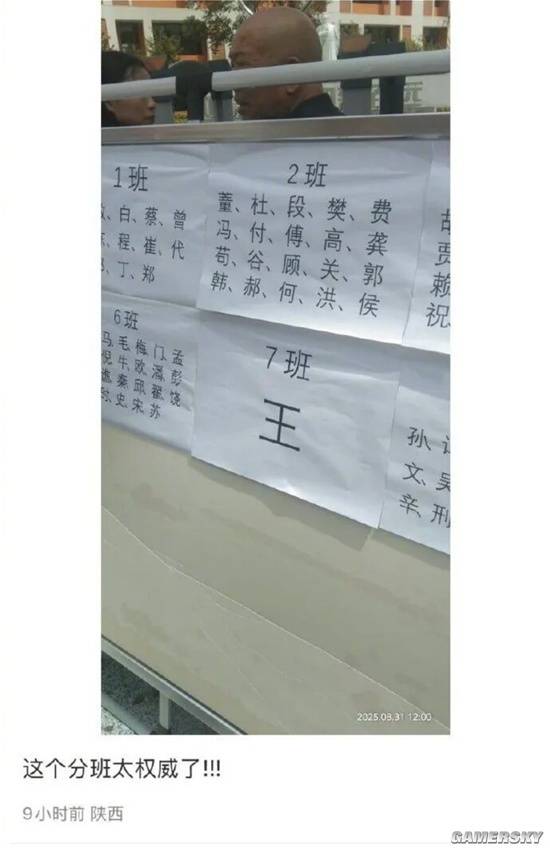 1班
、白、蔡、曾
、程、崔、代
、丁、郑
2班
董、杜、段、樊、费
冯、付、傅、高、龚
苟、谷、顾、关、郭
韩、郝、何、洪、侯
胡
贾
赖
祝
6班
马、毛、梅、门、孟
倪、牛、欧、潘、彭
秦、邱、翟、饶
时、史、宋、苏
7班
王
孙、
文、吴
辛、刑
2025.08.31 12:00
这个分班太权威了!!!
9小时前 陕西
GAMERSKY